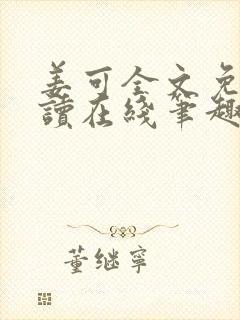 姜可全文免
讀在綫筆趣
董继寧